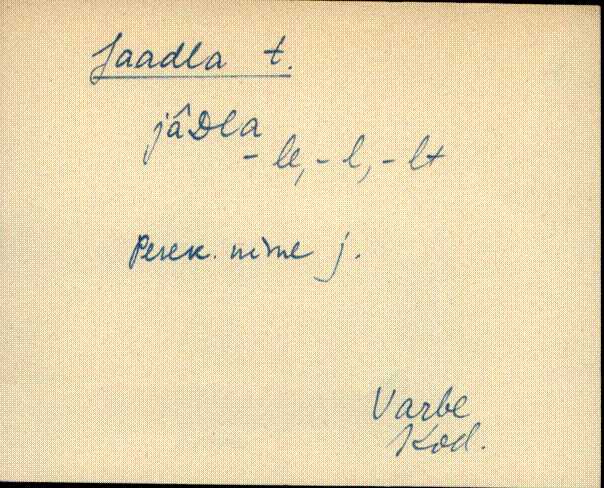 Jaadla t.
jâDla
- le, - l, - lt
Perek. nime j.
Varbe
Kod.